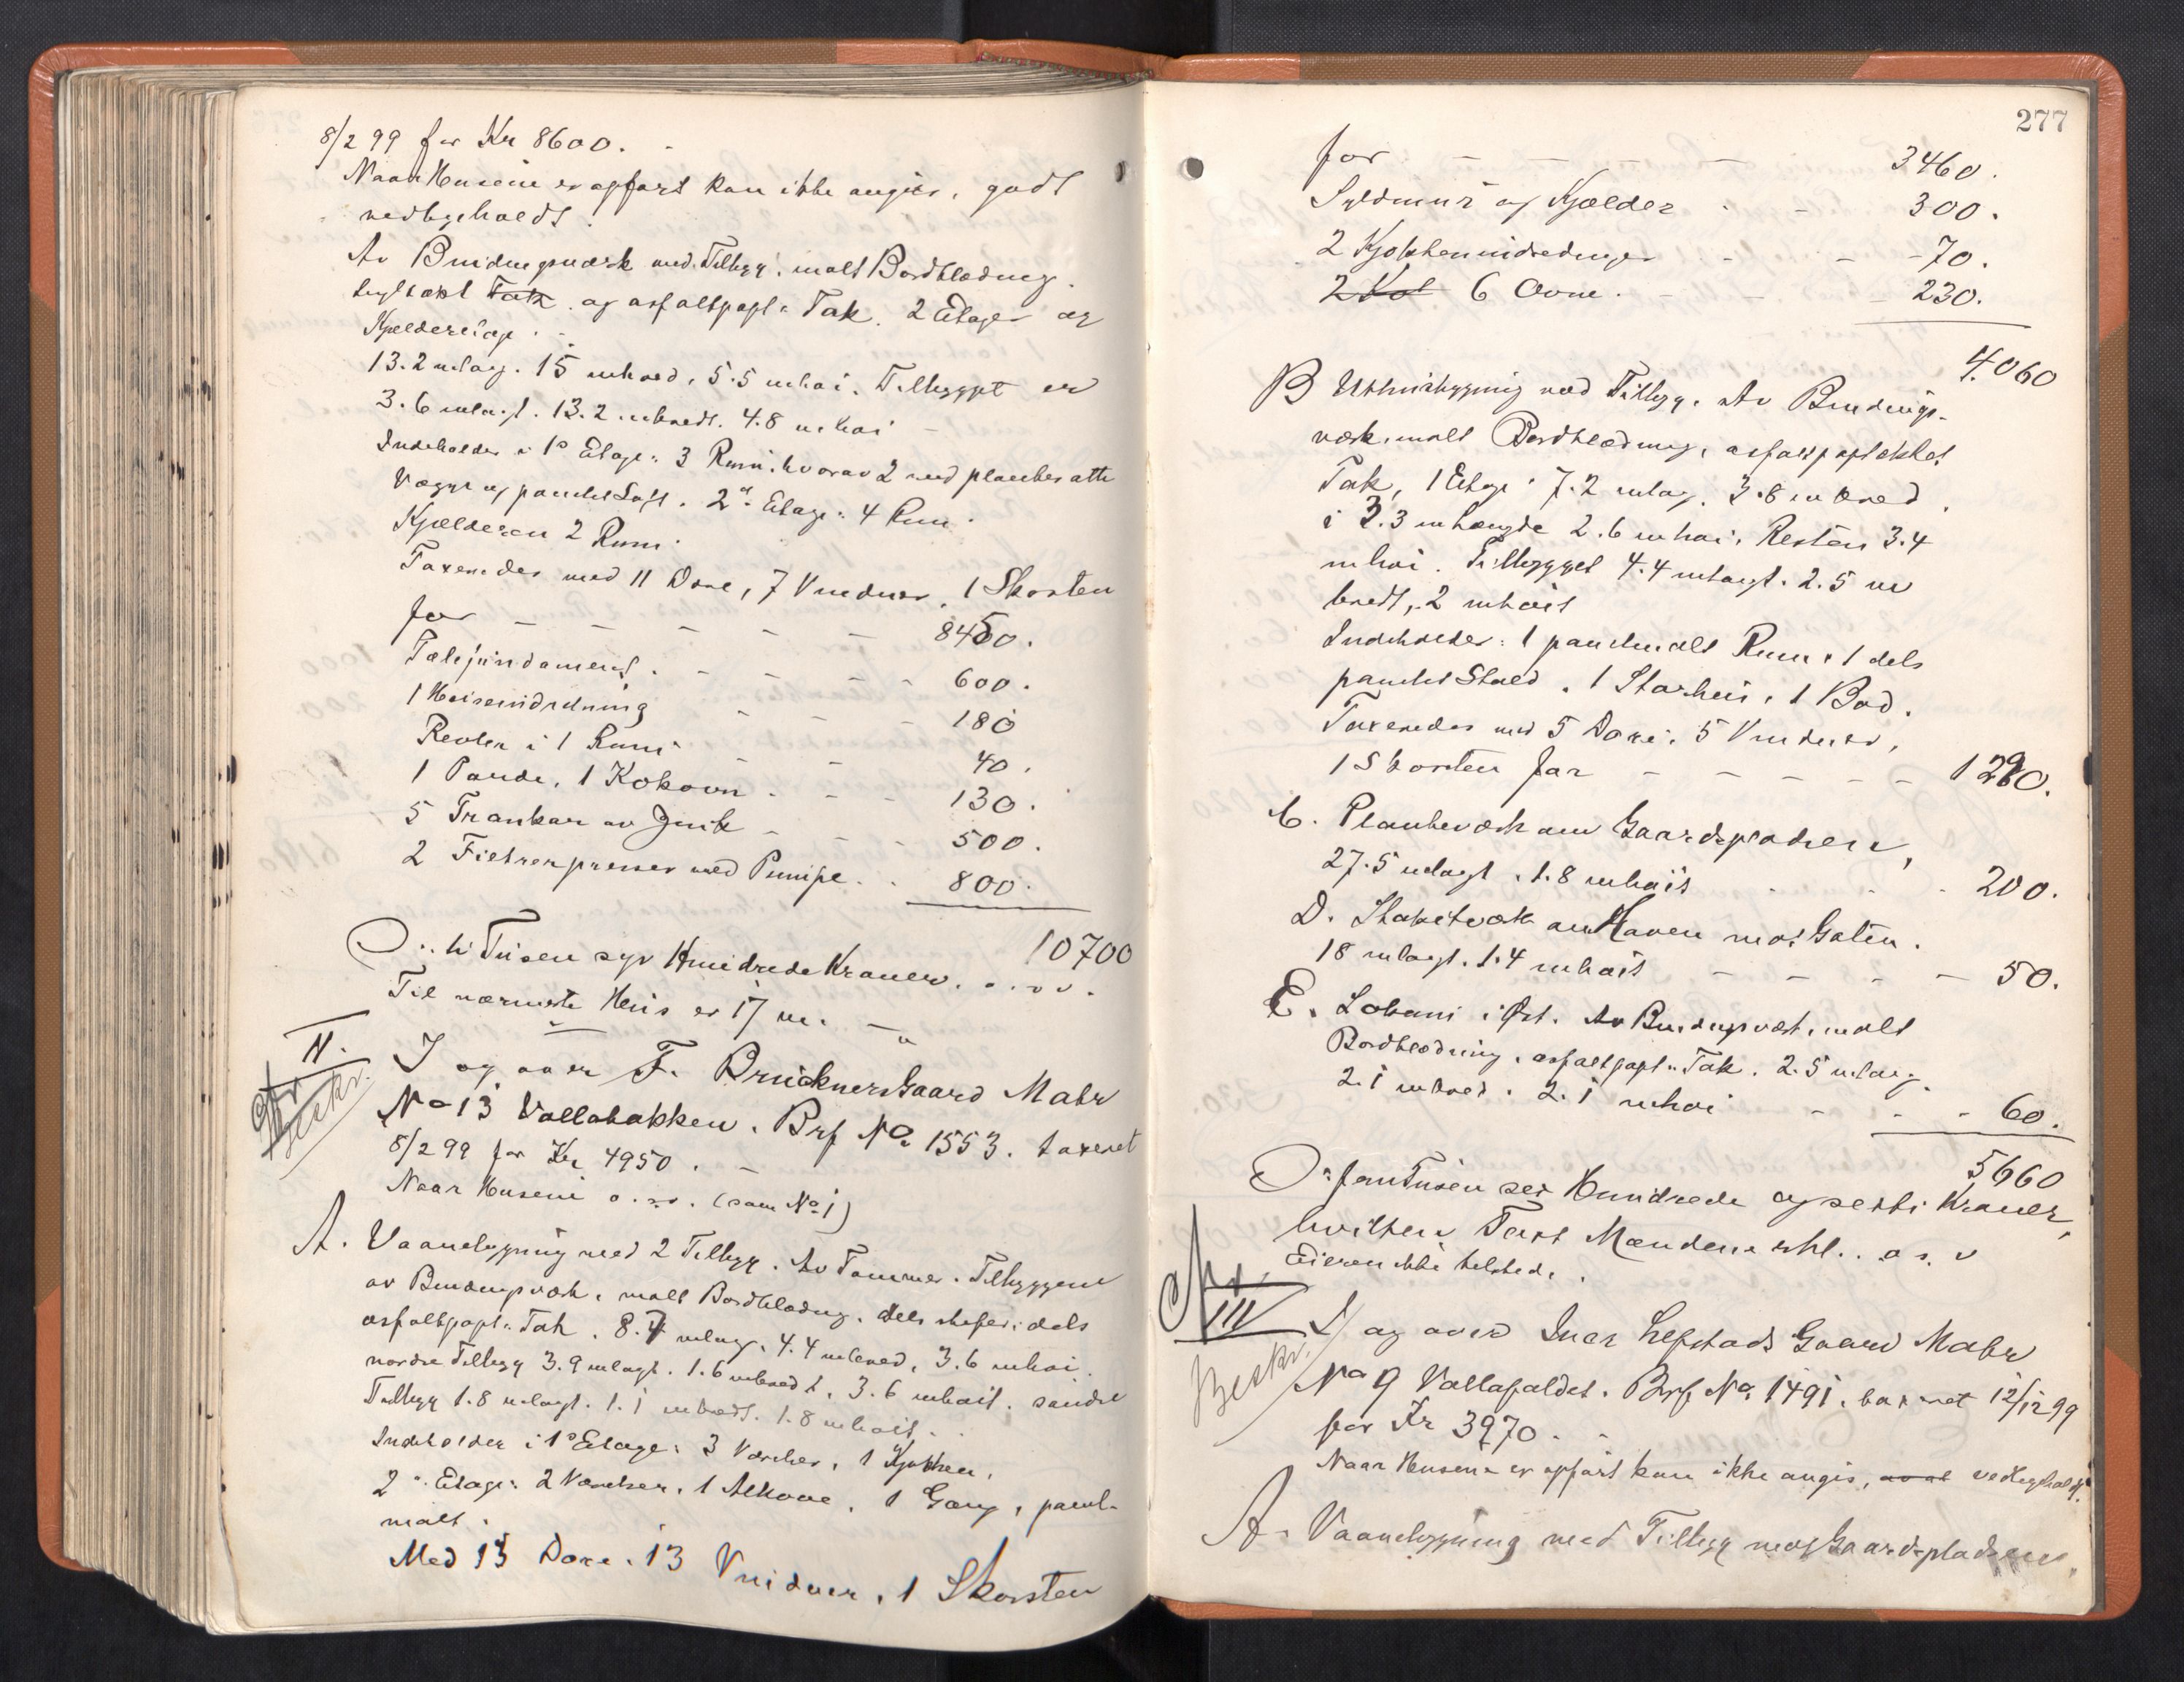 8/2 99 for Kr 8600.
Naar Husene er opført kan ikke angies, godt
vedligeholdt.
Av Bindingsværk med Tilbygg, malt Bordklædning.
teglhængt Tak og asfaltpapt. Tak. 2 Etager og
Kjælderetage.
13.2 m lang. 15 m bred, 5.5 m høi. Tilbygget er
3.6 m langt. 13.2 m bredt. 4.8 m høi
Indeholder i 1ste Etage: 3 Rum, hvorav 2 med plankesatte
Vægge og panelet Loft. 2den Etage: 4 Rum.
Kjælderen 2 Rum.
Taxeredes med 11 Døre, 7 Vinduer, 1 Skorsten
for – – – – – 8450.
Pælefundament. – – – – 600.
1 Heiseindretning – – – 180
Reoler i 1 Rum – – 40.
1 Pande, 1 Kokovn. – – 130.
5 Trankar av Zink – – – 500.
2 Filterpresser med Pumpe. . 800.
10700
O: ti Tusen syv Hundrede Kroner. o.s.v.
Til nærmeste Hus er 17 m.
II.
Beskr.
I og over F. Brückners Gaard Matr
No 13 Vollabakken. Brf No 1553. taxeret
8/2 99 for Kr 4950.
Naar Husene o.s.v. (som No 1)
A. Vaanebygning med 2 Tilbygg. Av Tømmer. Tilbyggene
av Bindingsværk, malt Bordklædng. dels skifer, dels
asfaltpapt. Tak. 8.4 m lang, 4.4 m bred, 3.6 m høi.
nordre Tilbygg 3.9 m langt. 1.6 m bredt, 3.6 m høit. søndre
Tilbygg 1.8 m langt. 1.1 m bredt. 1.8 m høit.
Indeholder i 1ste Etage: 3 Værelser, 1 Kjøkken,
2den Etage: 2 Værelser, 1 Alkove, 1 Gang, panel.
malt.
Med 13 Døre. 13 Vinduer, 1 Skorsten
277
for – – – 3460.
Syldmur og Kjælder – 300.
2 Kjøkkenindredninger – – 70.
6 Ovne. – – 230.
4060
B Uthusbygning med Tilbygg. Av Bindings-
værk, malt Bordklædning, asfaltpaptækket
Tak, 1 Etage. 7.2 m lang. 3.8 m bred
i 3.3 m Længde 2.6 m høi, Resten 3.4
m høi. Tilbygget 4.4 m langt. 2.5 m
bredt, 2 m høit
Indeholder: 1 panelmalt Rum, 1 dels
panelet Stald. 1 Storhus, 1 Bod.
Taxeredes med 5 Døre, 5 Vinduer,
1 Skorsten for – – – – – 1290.
C. Plankeværk om Gaardspladsen,
27.5 m langt. 1.8 m høit – – – 200.
D. Stakitværk om Haven mot Gaten.
18 m langt. 1.4 m høit – – – – 50.
E. Lokum i Øst. Av Bindingsværk, malt
Bordklædning, asfaltpapt. Tak. 2.5 m lang.
2.1 m bred. 2.1 m høi – – – 60.
5660
O: fem Tusen sex Hundrede og sexti Kroner,
hvilken Taxt Mændene erkl. o.s.v
Eieren ikke tilstede.
III
Beskr.
I og over Iver Lefstads Gaard Matr
No 9 Vollafaldet. Brf No 1491. taxeret 12/12 99
for Kr 3970.
Naar Husene er opført kan ikke angis, vedligeholdt.
A. Vaanebygning med Tilbygg mot Gaardspladsen,